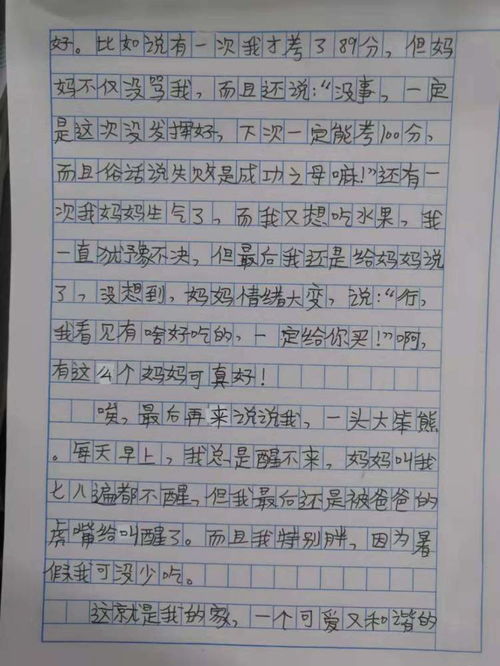 好。比如说有一次我才考了89分，但妈
妈不仅没骂我，而且还说：“没事，一定
是这次没发挥好，下次一定能考100分，
而且俗话说失败是成功之母嘛！”还有一
次我妈妈生气了，而我又想吃水果，我
一直犹豫不决，但最后我还是给妈妈说
了，没想到，妈妈情绪大变，说：“行，
我看见有啥好吃的，一定给你买！”啊，
有这么个妈妈可真好！
唉，最后再来说说我，一头大笨熊
。每天早上，我总是醒不来，妈妈叫我
七八遍都不醒，但我最后还是被爸爸的
虎嘴给叫醒了。而且我特别胖，因为暑
假我可没少吃。
这就是我的家，一个可爱又和谐的